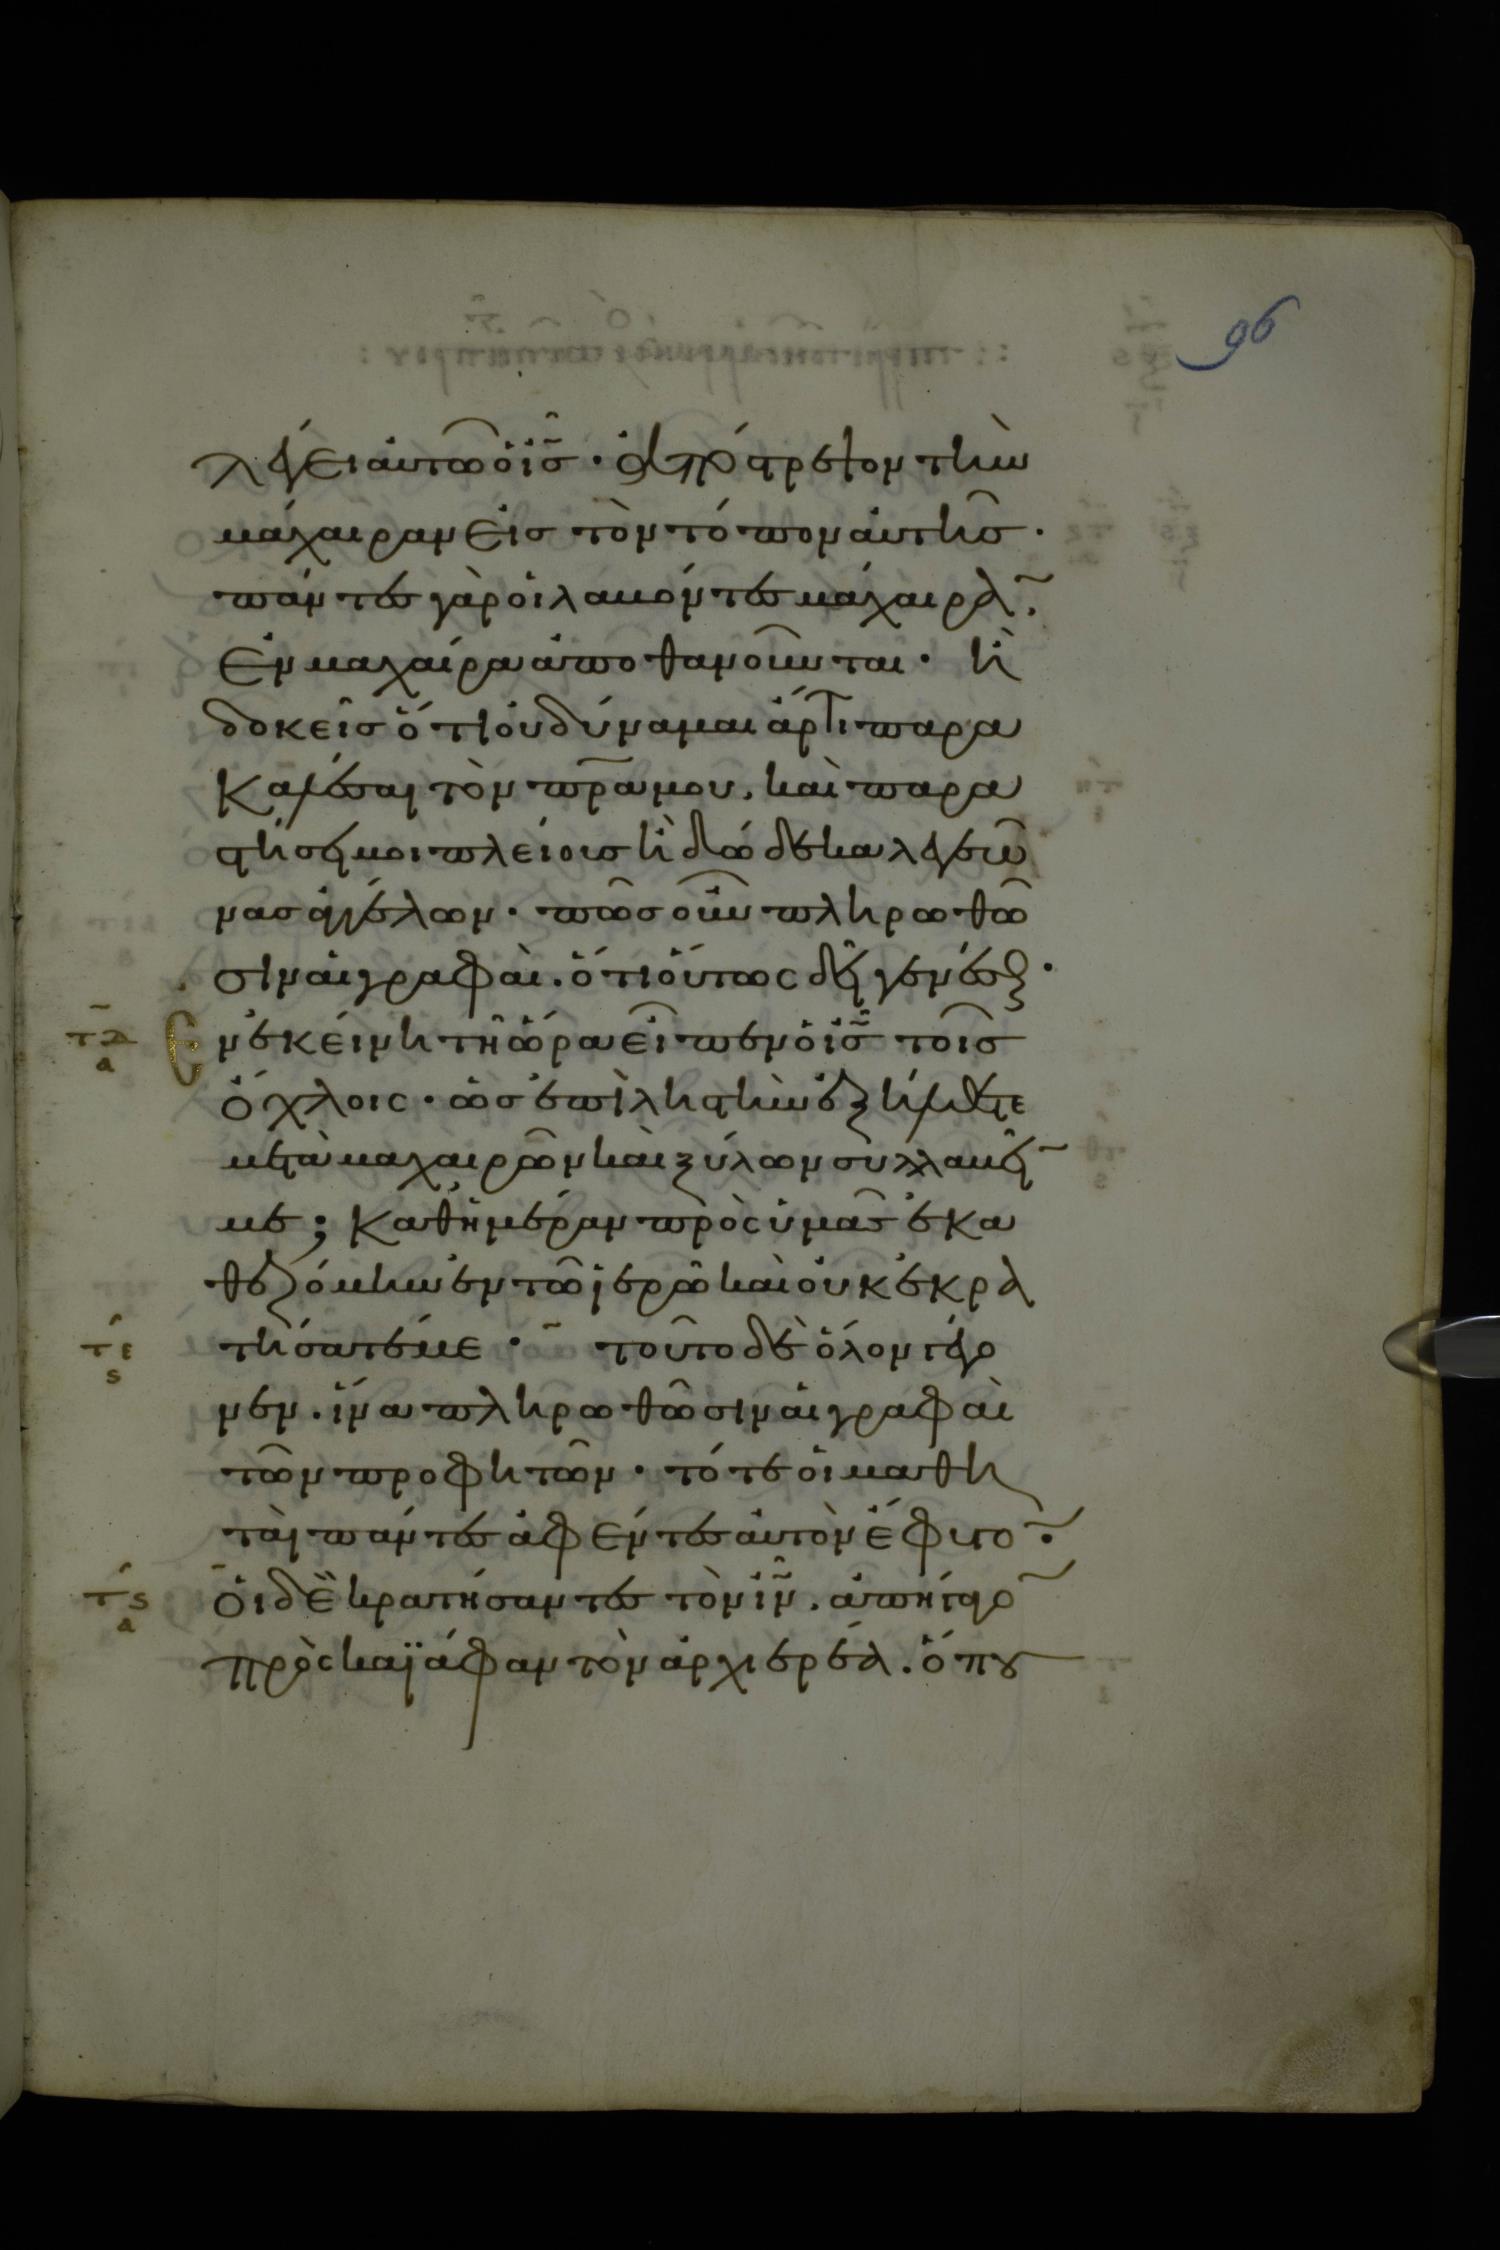 96
λέγει αὐτῶ ὁ ις̅· ἀπόστρεψον τὴν
μάχαιραν εἰς τὸν τόπον αὐτῆς·
πάντες γὰρ οἱ λαβόντες μάχαιρα̅·
ἐν μαχαίρα ἀποθανοῦνται· ἢ
δοκεῖς ὅτι οὐ δύναμαι ἄρτι παρα
καλέσαι τὸν πρ̅α μου, καὶ παρα
στήσει μοι πλείους ἢ δώδεκα λεγεῶ
νας ἀγγέλων· πῶς οὖν πληρωθῶ
σιν αἱ γραφαὶ. ὅτι οὕτως δεῖ γενέσθαι·
τδ̅
α
Ἐν ἐκείνη τῆ ὥρα εἶπεν ὁ ις̅ τοῖς
ὄχλοις· ὡς ἐπὶ ληστὴν ἐξήλθετε
μετὰ μαχαιρῶν καὶ ξύλων συλλαβεῖ̅
με; καθ' ἡμέραν πρὸς ὑμᾶς ἐκα
θεζόμην ἐν τῶ ἱερῶ καὶ οὐκ ἐκρα
τε
ς
τήσατέ με· τοῦτο δὲ ὅλον γέγο
νεν. ἵνα πληρωθῶσιν αἱ γραφαὶ
τῶν προφητῶν· τότε οἱ μαθη
ταὶ πάντες ἀφέντες αὐτὸν ἔφυγο̅·
τς
α
Οἱ δὲ κρατήσαντες τὸν ιν̅. ἀπήγαγο̅
πρὸς καϊάφαν τὸν ἀρχιερέα. ὅπου